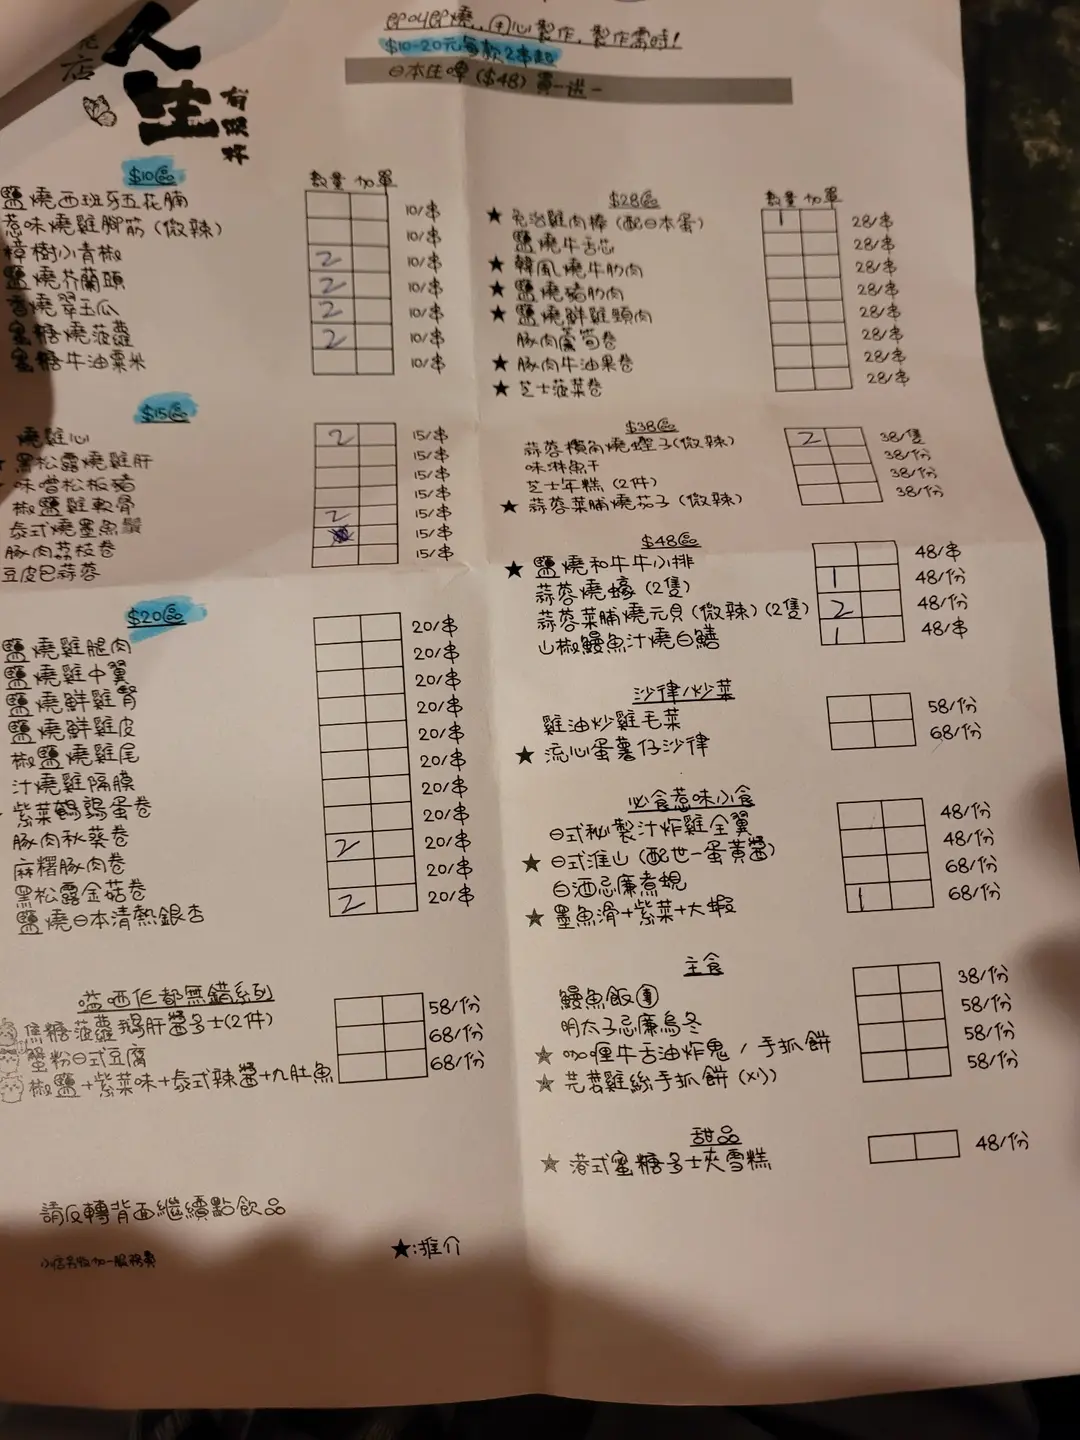 人生
店
有
即叫即燒,用心製作,製作需時!
$10-20元每款2串起
日本生啤($48)買一送一
$10區
數量 加單
鹽燒西班牙五花腩 10/串
惹味燒雞腳筋(微辣) 10/串
樟樹小青椒 2 10/串
鹽燒芥蘭頭 2 10/串
香燒翠玉瓜 2 10/串
蜜糖燒菠蘿 2 10/串
蜜糖牛油粟米 10/串
$15區
燒雞心 2 15/串
黑松露燒雞肝 15/串
味噌松板豬 15/串
椒鹽雞軟骨 15/串
泰式燒墨魚鬚 2 15/串
豚肉荔枝卷 15/串
豆皮包蒜蓉 15/串
$20區
鹽燒雞腿肉 20/串
鹽燒雞中翼 20/串
鹽燒鮮雞腎 20/串
鹽燒鮮雞皮 20/串
椒鹽燒雞尾 20/串
汁燒雞隔膜 20/串
紫菜鵪鶉蛋卷 20/串
豚肉秋葵卷 20/串
麻糬豚肉卷 2 20/串
黑松露金菇卷 20/串
鹽燒日本清熱銀杏 2 20/串
嗌晒佢都無錯系列
焦糖菠蘿鵝肝醬多士(2件) 58/份
蟹粉日式豆腐 68/份
椒鹽+紫菜味+泰式辣醬+九肚魚 68/份
請反轉背面繼續點飲品
小店另設加一服務費
★:推介
$28區
數量 加單
★ 免治雞肉棒(配日本蛋) 1 28/串
鹽燒牛舌芯 28/串
★ 韓風燒牛肋肉 28/串
★ 鹽燒豬肋肉 28/串
★ 鹽燒鮮雞頸肉 28/串
豚肉蘆筍卷 28/串
★ 豚肉牛油果卷 28/串
★ 芝士菠菜卷 28/串
$38區
蒜蓉欖角燒蟶子(微辣) 2 38/隻
味淋魚干 38/份
芝士年糕(2件) 38/份
★ 蒜蓉菜脯燒茄子(微辣) 38/份
$48區
★ 鹽燒和牛牛小排 48/串
蒜蓉燒蠔(2隻) 1 48/份
蒜蓉菜脯燒元貝(微辣)(2隻) 2 48/份
山椒鰻魚汁燒白鱔 1 48/串
沙律/炒菜
雞油炒雞毛菜 58/份
★ 流心蛋薯仔沙律 68/份
必食惹味小食
日式秘製汁炸雞全翼 48/份
★ 日式淮山(配世一蛋黃醬) 48/份
白酒忌廉煮蜆 68/份
★ 墨魚滑+紫菜+大蝦 1 68/份
主食
鰻魚飯 38/份
明太子忌廉烏冬 58/份
★ 咖喱牛舌油炸鬼/手抓餅 58/份
★ 芫荽雞絲手抓餅(刈) 58/份
甜品
★ 港式蜜糖多士夾雪糕 48/份